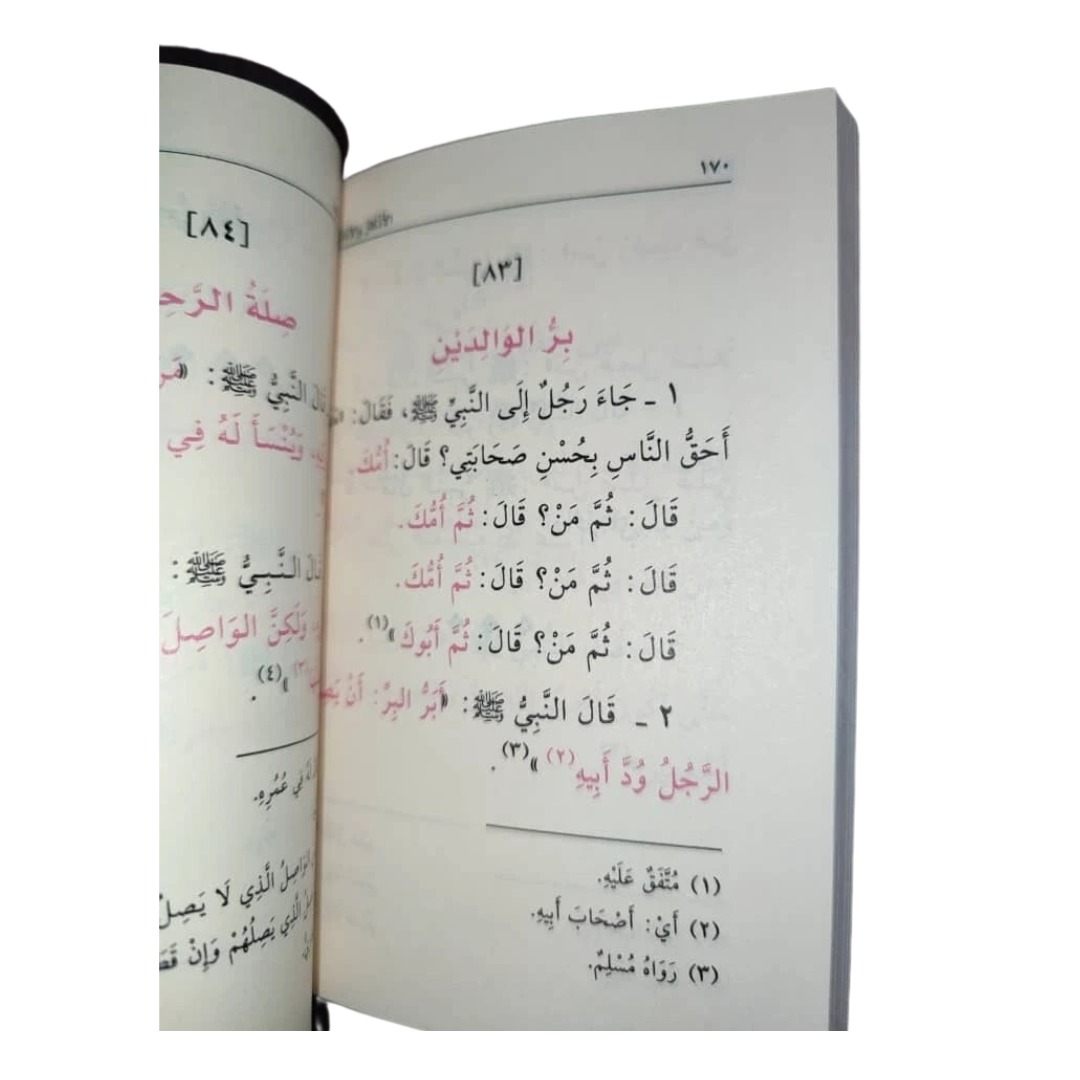 ١٧٠
[٨٣]
بِرُّ الوَالِدَيْنِ
١ ـ جَاءَ رَجُلٌ إِلَى النَّبِيِّ ﷺ، فَقَالَ:
أَحَقُّ النَّاسِ بِحُسْنِ صَحَابَتِي؟ قَالَ: أُمُّكَ.
قَالَ: ثُمَّ مَنْ؟ قَالَ: ثُمَّ أُمُّكَ.
قَالَ: ثُمَّ مَنْ؟ قَالَ: ثُمَّ أُمُّكَ.
قَالَ: ثُمَّ مَنْ؟ قَالَ: ثُمَّ أَبُوكَ»(١).
٢ ـ قَالَ النَّبِيُّ ﷺ: «أَبَرُّ البِرِّ: أَنْ
الرَّجُلُ وُدَّ أَبِيهِ(٢)»(٣).
(١) مُتَّفَقٌ عَلَيْهِ.
(٢) أَيْ: أَصْحَابَ أَبِيهِ.
(٣) رَوَاهُ مُسْلِمٌ.
[٨٤]
صِلَةُ
قَالَ النَّبِيُّ ﷺ:
وَيُنْسَأَ لَهُ فِي
قَالَ النَّبِيُّ ﷺ:
وَلَكِنَّ الوَاصِلَ
(٣)»(٤).
لَهُ فِي عُمُرِهِ.
الوَاصِلُ الَّذِي لَا يَصِلُ
الَّذِي يَصِلُهُمْ وَإِنْ